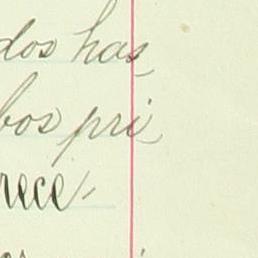 dos has
bos pri
rece